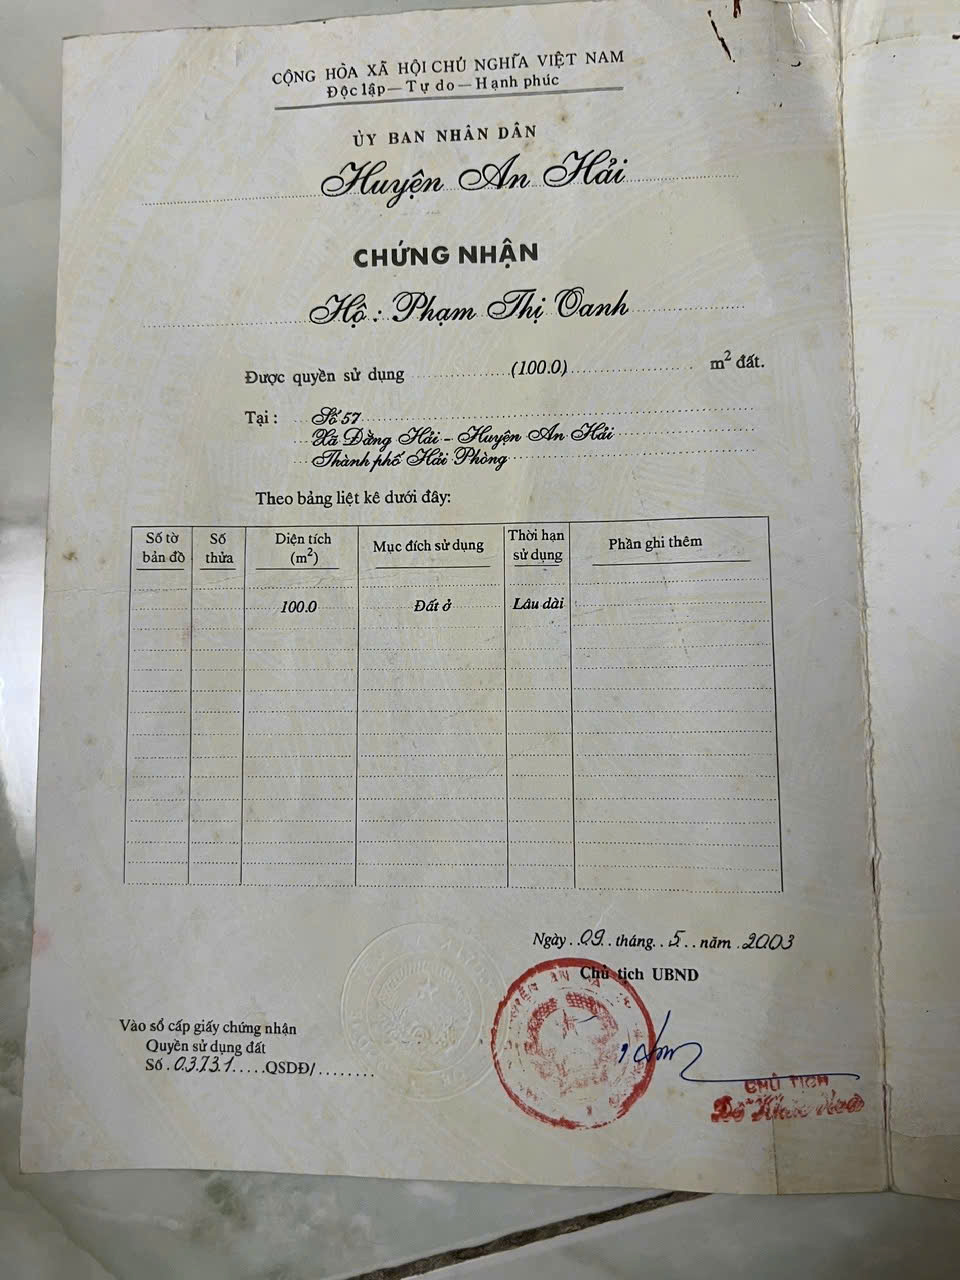 CỘNG HÒA XÃ HỘI CHỦ NGHĨA VIỆT NAM
Độc lập — Tự do — Hạnh phúc
ỦY BAN NHÂN DÂN
Huyện An Hải
CHỨNG NHẬN
Hộ : Phạm Thị Oanh
Được quyền sử dụng (100.0) m² đất.
Tại : Số 57
Xã Đằng Hải - Huyện An Hải
Thành phố Hải Phòng
Theo bảng liệt kê dưới đây:
Số tờ bản đồ
Số thửa
Diện tích (m²)
Mục đích sử dụng
Thời hạn sử dụng
Phần ghi thêm
100.0 Đất ở Lâu dài
Ngày 09 tháng 5 năm 2003
Chủ tịch UBND
Vào sổ cấp giấy chứng nhận
Quyền sử dụng đất
Số 03731 QSDĐ/
CHỦ TỊCH